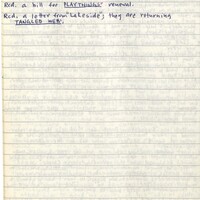 Rcd. a bill for PLAYTHINGS' renewal.
Rcd. a letter from "Lakeside"; they are returning
TANGLED WEB.